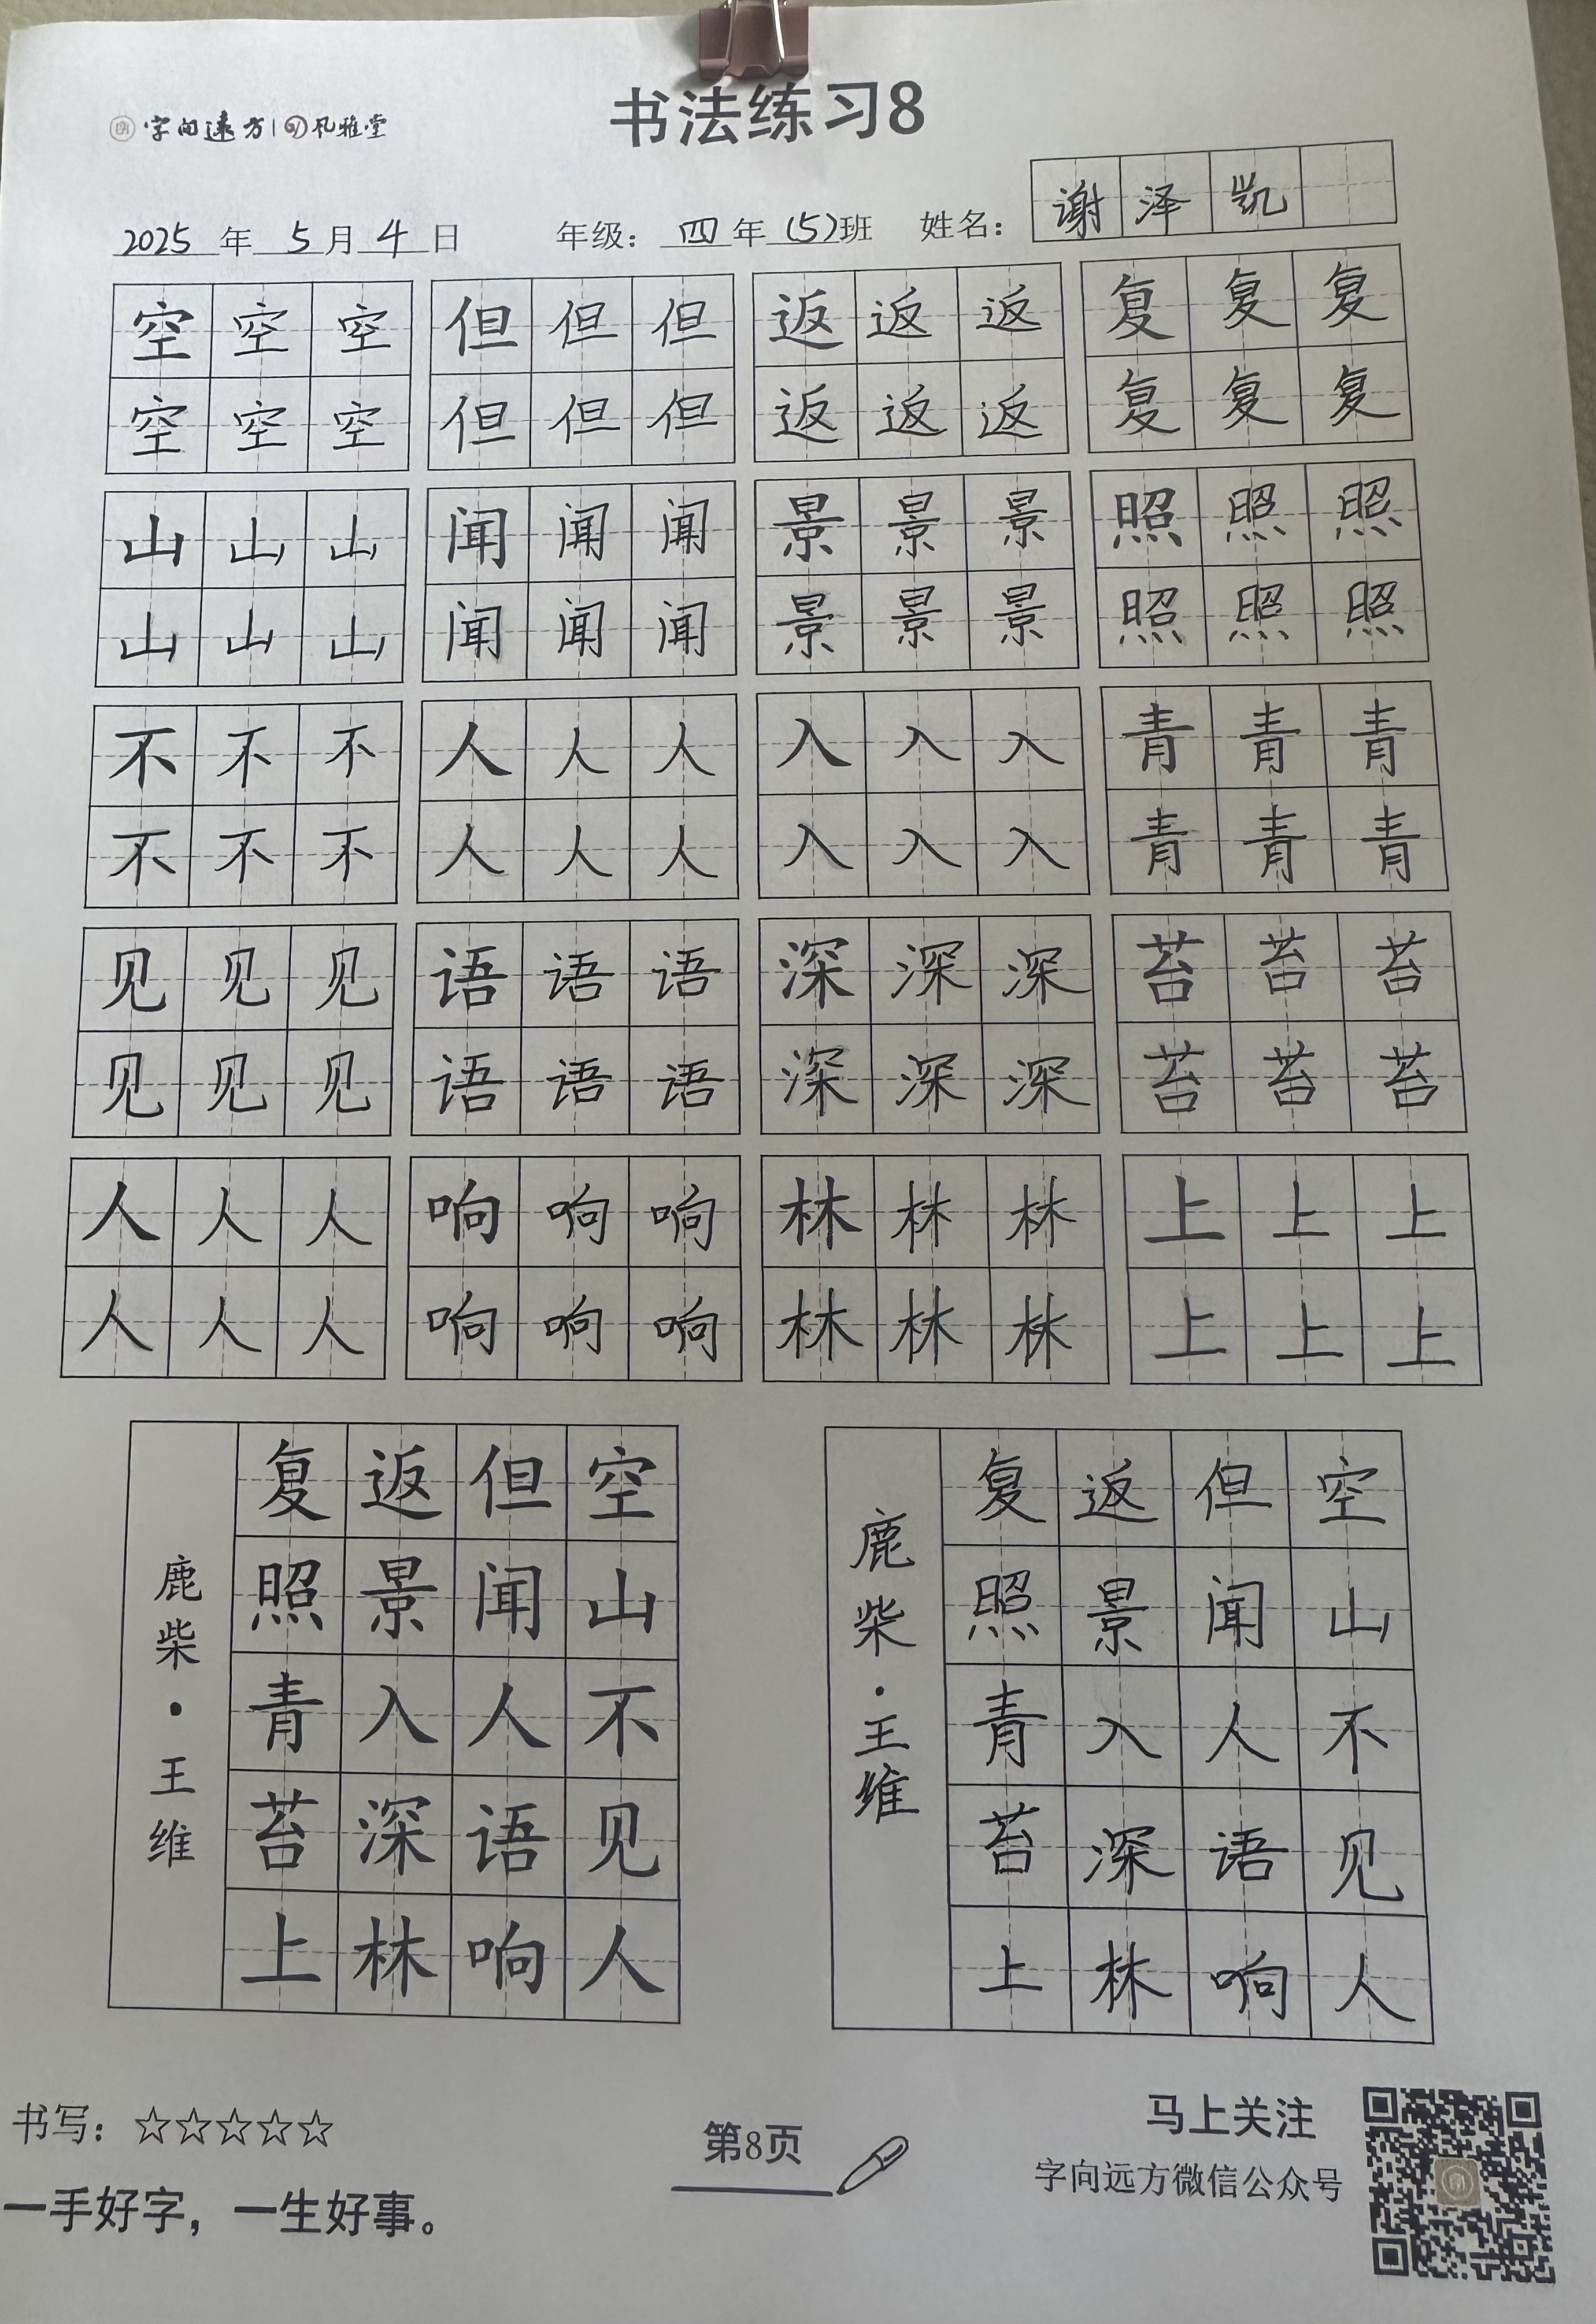 字向远方 风雅堂
书法练习8
2025年5月4日 年级：四年(5)班 姓名：谢泽凯
空空空 但但但 返返返 复复复
空空空 但但但 返返返 复复复
山山山 闻闻闻 景景景 照照照
山山山 闻闻闻 景景景 照照照
不不不 人人人 入入入 青青青
不不不 人人人 入入入 青青青
见见见 语语语 深深深 苔苔苔
见见见 语语语 深深深 苔苔苔
人人人 响响响 林林林 上上上
人人人 响响响 林林林 上上上
空山不见人
但闻人语响
返景入深林
复照青苔上
鹿柴·王维
空山不见人
但闻人语响
返景入深林
复照青苔上
鹿柴·王维
书写：☆☆☆☆☆
一手好字，一生好事。
第8页
马上关注
字向远方微信公众号